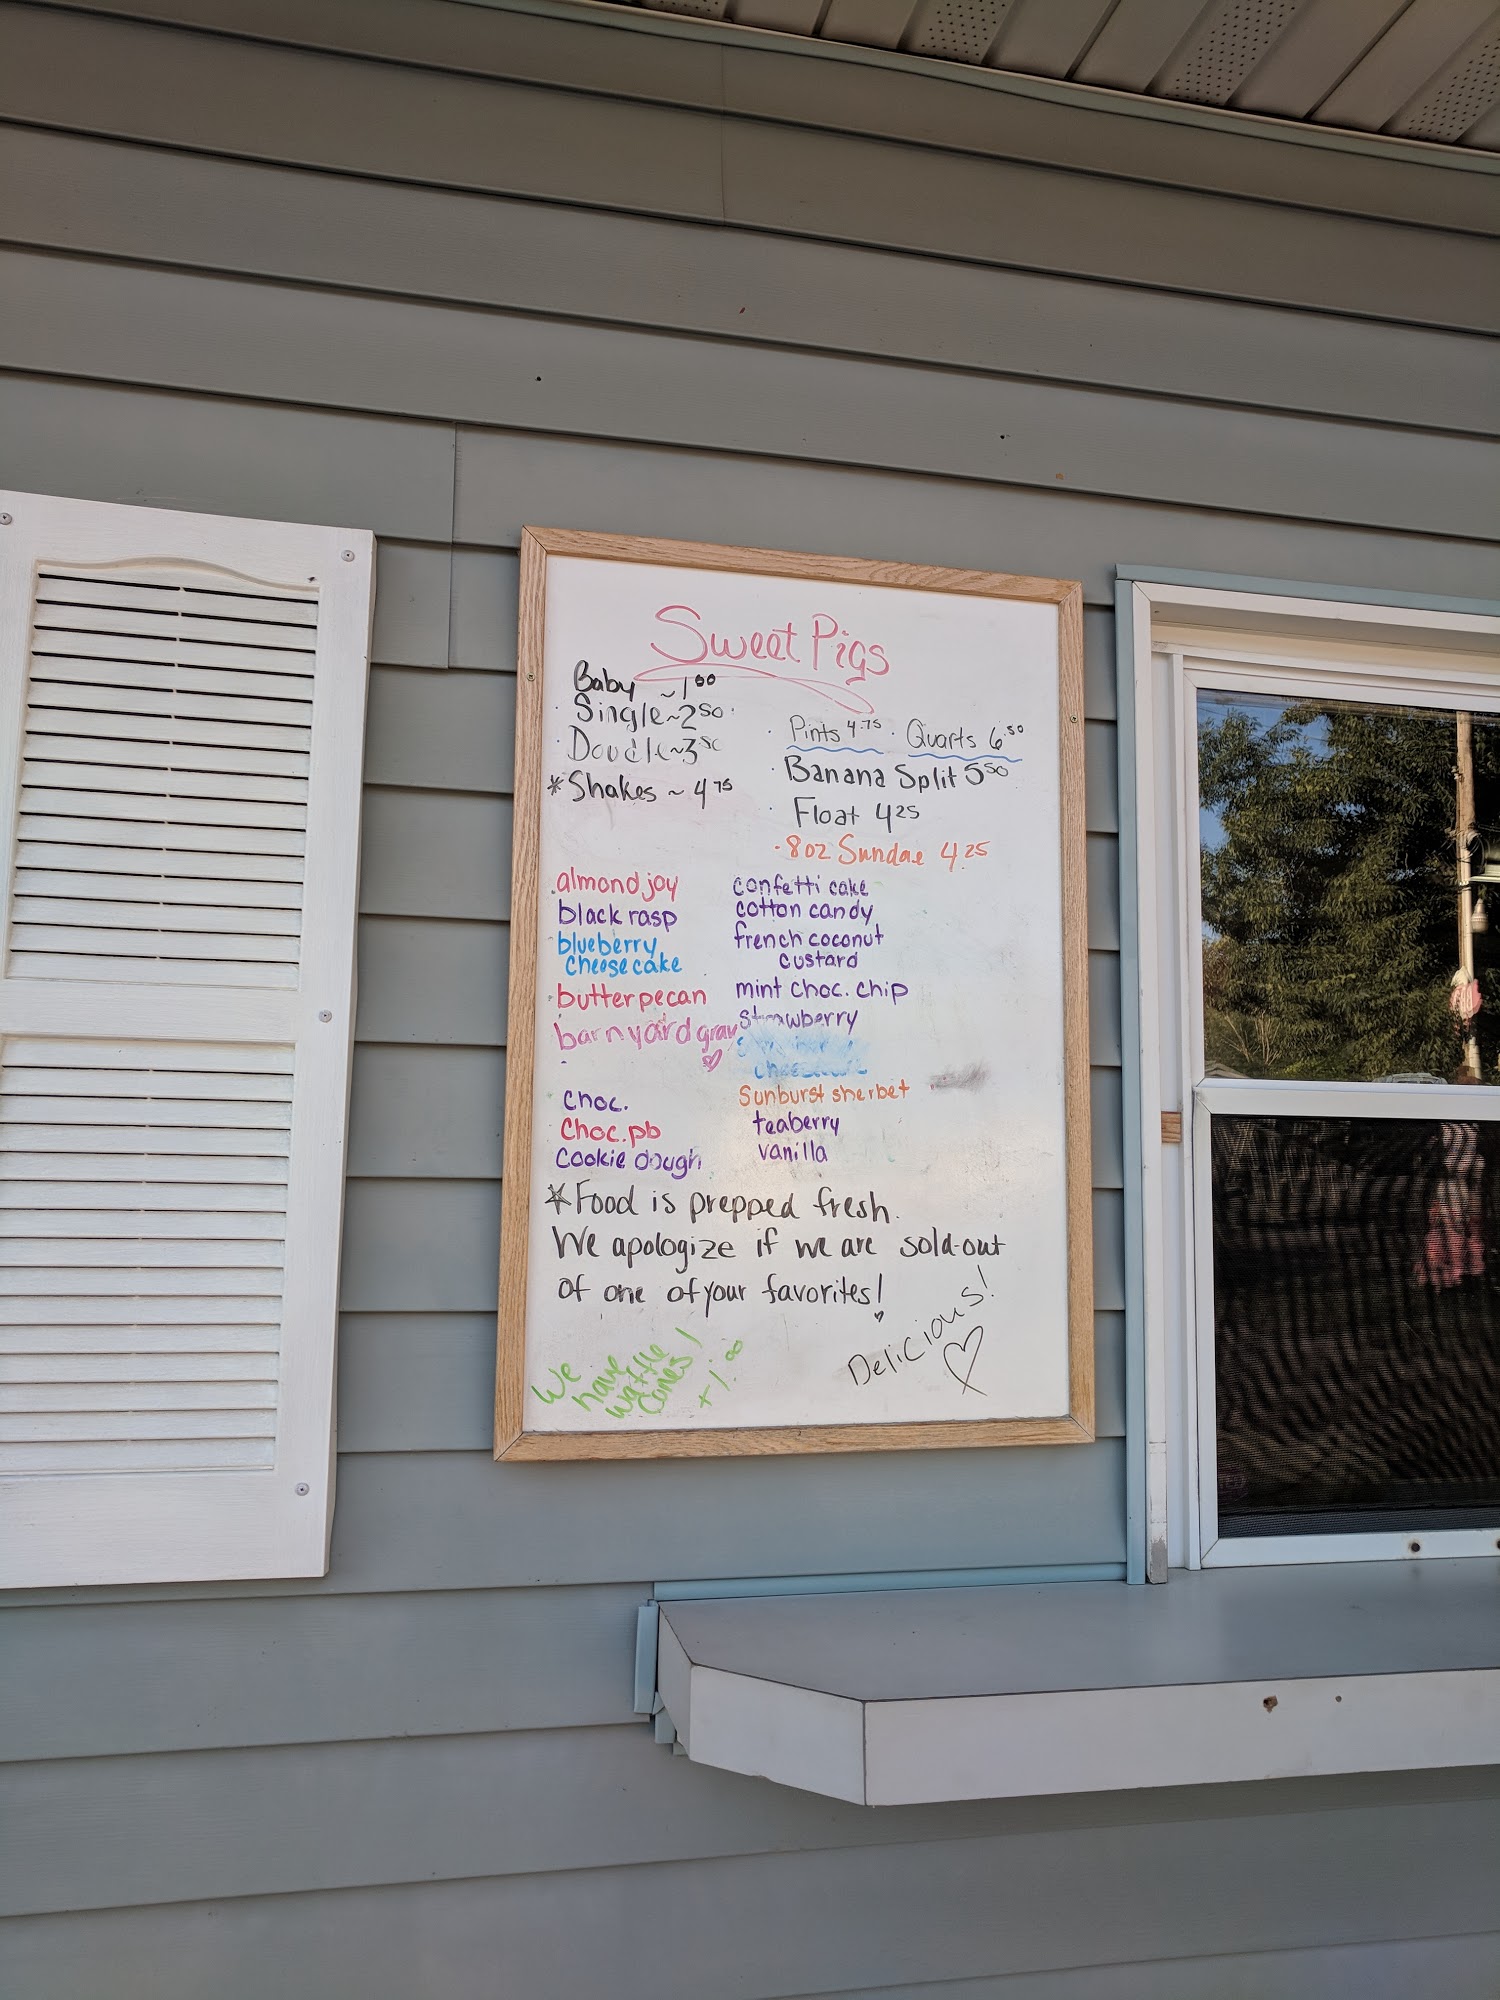 Sweet Pigs
Baby ~1.00
Single~2.50
Double~3.50
*Shakes ~ 4.75
Pints 4.75 · Quarts 6.50
Banana Split 5.50
Float 4.25
8oz Sundae 4.25
almond joy
black rasp
blueberry
cheesecake
butter pecan
barnyard
choc.
choc. pb
cookie dough
confetti cake
cotton candy
french coconut
custard
mint choc. chip
strawberry
sunburst sherbet
teaberry
vanilla
*Food is prepped fresh.
We apologize if we are sold-out
of one of your favorites!
We
have
waffle
cones!
+1.00
Delicious!